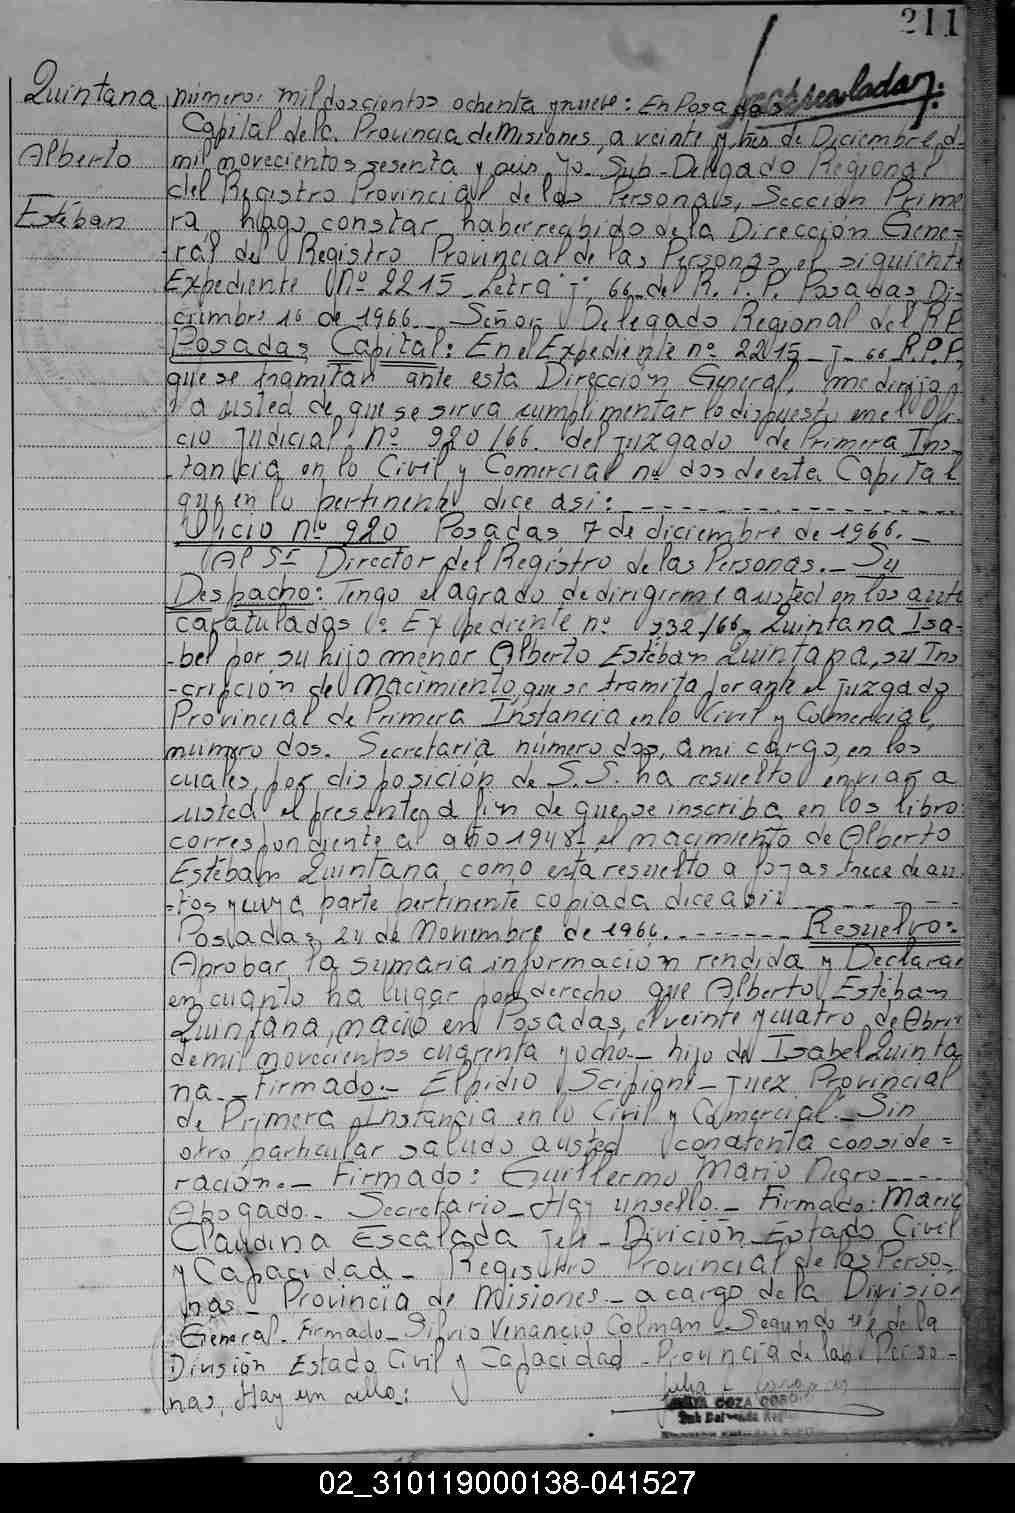 211
Quintana
Alberto
Estéban
número: mil doscientos ochenta y nueve: En Posadas
Capital de la Provincia de Misiones, a veinte y tres de Diciembre d-
mil novecientos sesenta y seis, Yo Sub-Delegado Regional
del Registro Provincial de las Personals, Sección Prime
ra, hago constar haber recibido de la Dirección Gene=
ral del Registro Provincial de las Personas, el siguiente
Expediente Nº 2215 Letra j- 66 del R. P. P. Posadas Di-
ciembre 16 de 1966 - Señor Delegado Regional del R.P.
Posadas Capital: En el Expediente nº 2215 - j- 66 R.P.P.
que se tramitan ante esta Dirección General, me dirijo
a usted de que se sirva cumplimentar lo dispuesto en el Ofi-
cio Judicial: nº 920/66. del juzgado de Primera Ins-
tancia en lo Civil y Comercial nº dos de esta Capital
que en lo pertinente dice asi:
Oficio nº 920 Posadas 7 de diciembre de 1966. -
Al Sr Director del Registro de las Personas. - Su
Despacho: Tengo el agrado de dirigirme a usted en los auto
caratulados Expediente nº 932/66, Quintana Isa-
bel por su hijo menor Alberto Estéban Quintana, su Ins
-cripción de Nacimiento, que se tramita por ante el juzgado
Provincial de Primera Instancia en lo Civil y Comercial,
número dos. Secretaria número dos, a mi cargo, en los
cuales, por disposición de S.S. ha resuelto enviar a
usted el presente a fin de que se inscriba en los libro
correspondiente al año 1948 el nacimiento de Alberto
Estéban Quintana como esta resuelto a fojas trece de au
-tos y cuya parte pertinente copiada dice asi:
Posadas, 24 de Noviembre de 1966. Resuelvo:
Aprobar la sumaria información rendida y Declarar
en cuanto ha lugar por derecho que Alberto Estéban
Quintana, nació en Posadas, el veinte y cuatro de Abril
de mil novecientos cuarenta y ocho. - hijo de Isabel Quinta
na. - Firmado. - Elpidio Scipioni - Juez Provincial
de Primera Instancia en lo Civil y Comercial. - Sin
otro particular saludo a usted con atenta conside=
ración. - Firmado: Guillermo Mario Negro
Abogado. - Secretario - Hay un sello. - Firmado: Maria
Claudina Escalada Jefe - División Estado Civil
y Capacidad - Registro Provincial de las Perso-
nas - Provincia de Misiones - a cargo de la División
General. Firmado - Silvio Venancio Colman - Segundo jefe de la
División Estado Civil y Capacidad - Provincia de las Perso-
nas, Hay un sello:
02_310119000138-041527